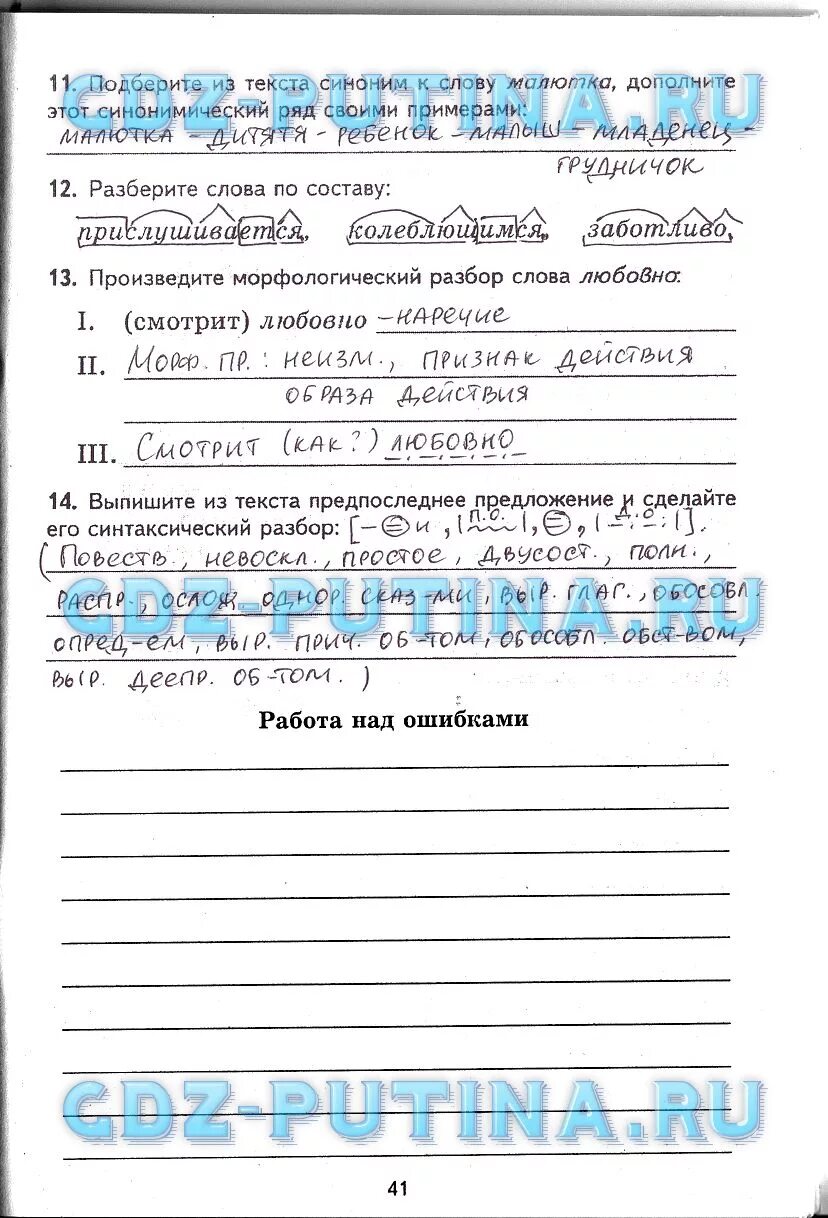 GDZ-PUTINA.RU
11. Подберите из текста синоним к слову малютка, дополните
этот синонимический ряд своими примерами:
МАЛЮТКА - ДИТЯТЯ - РЕБЕНОК - МАЛЫШ - МЛАДЕНЕЦ -
ГРУДНИЧОК
12. Разберите слова по составу:
прислушивается, колеблющимся, заботливо,
13. Произведите морфологический разбор слова любовно:
I. (смотрит) любовно - НАРЕЧИЕ
II. МОРФ. ПР.: НЕИЗМ., ПРИЗНАК ДЕЙСТВИЯ
ОБРАЗА ДЕЙСТВИЯ
III. СМОТРИТ (КАК?) ЛЮБОВНО
14. Выпишите из текста предпоследнее предложение и сделайте
его синтаксический разбор: [– = и , | П.О. |, =, | Д.О. |].
(ПОВЕСТВ., НЕВОСКЛ., ПРОСТОЕ, ДВУСОСТ., ПОЛН.,
GDZ-PUTINA.RU
РАСПР., ОСЛОЖ. ОДНОР. СКАЗ-МИ, ВЫР. ГЛАГ., ОБОСОБЛ.
ОПРЕД-ЕМ, ВЫР. ПРИЧ. ОБ-ТОМ, ОБОСОБЛ. ОБСТ-ВОМ,
ВЫР. ДЕЕПР. ОБ-ТОМ.)
Работа над ошибками
GDZ-PUTINA.RU
41